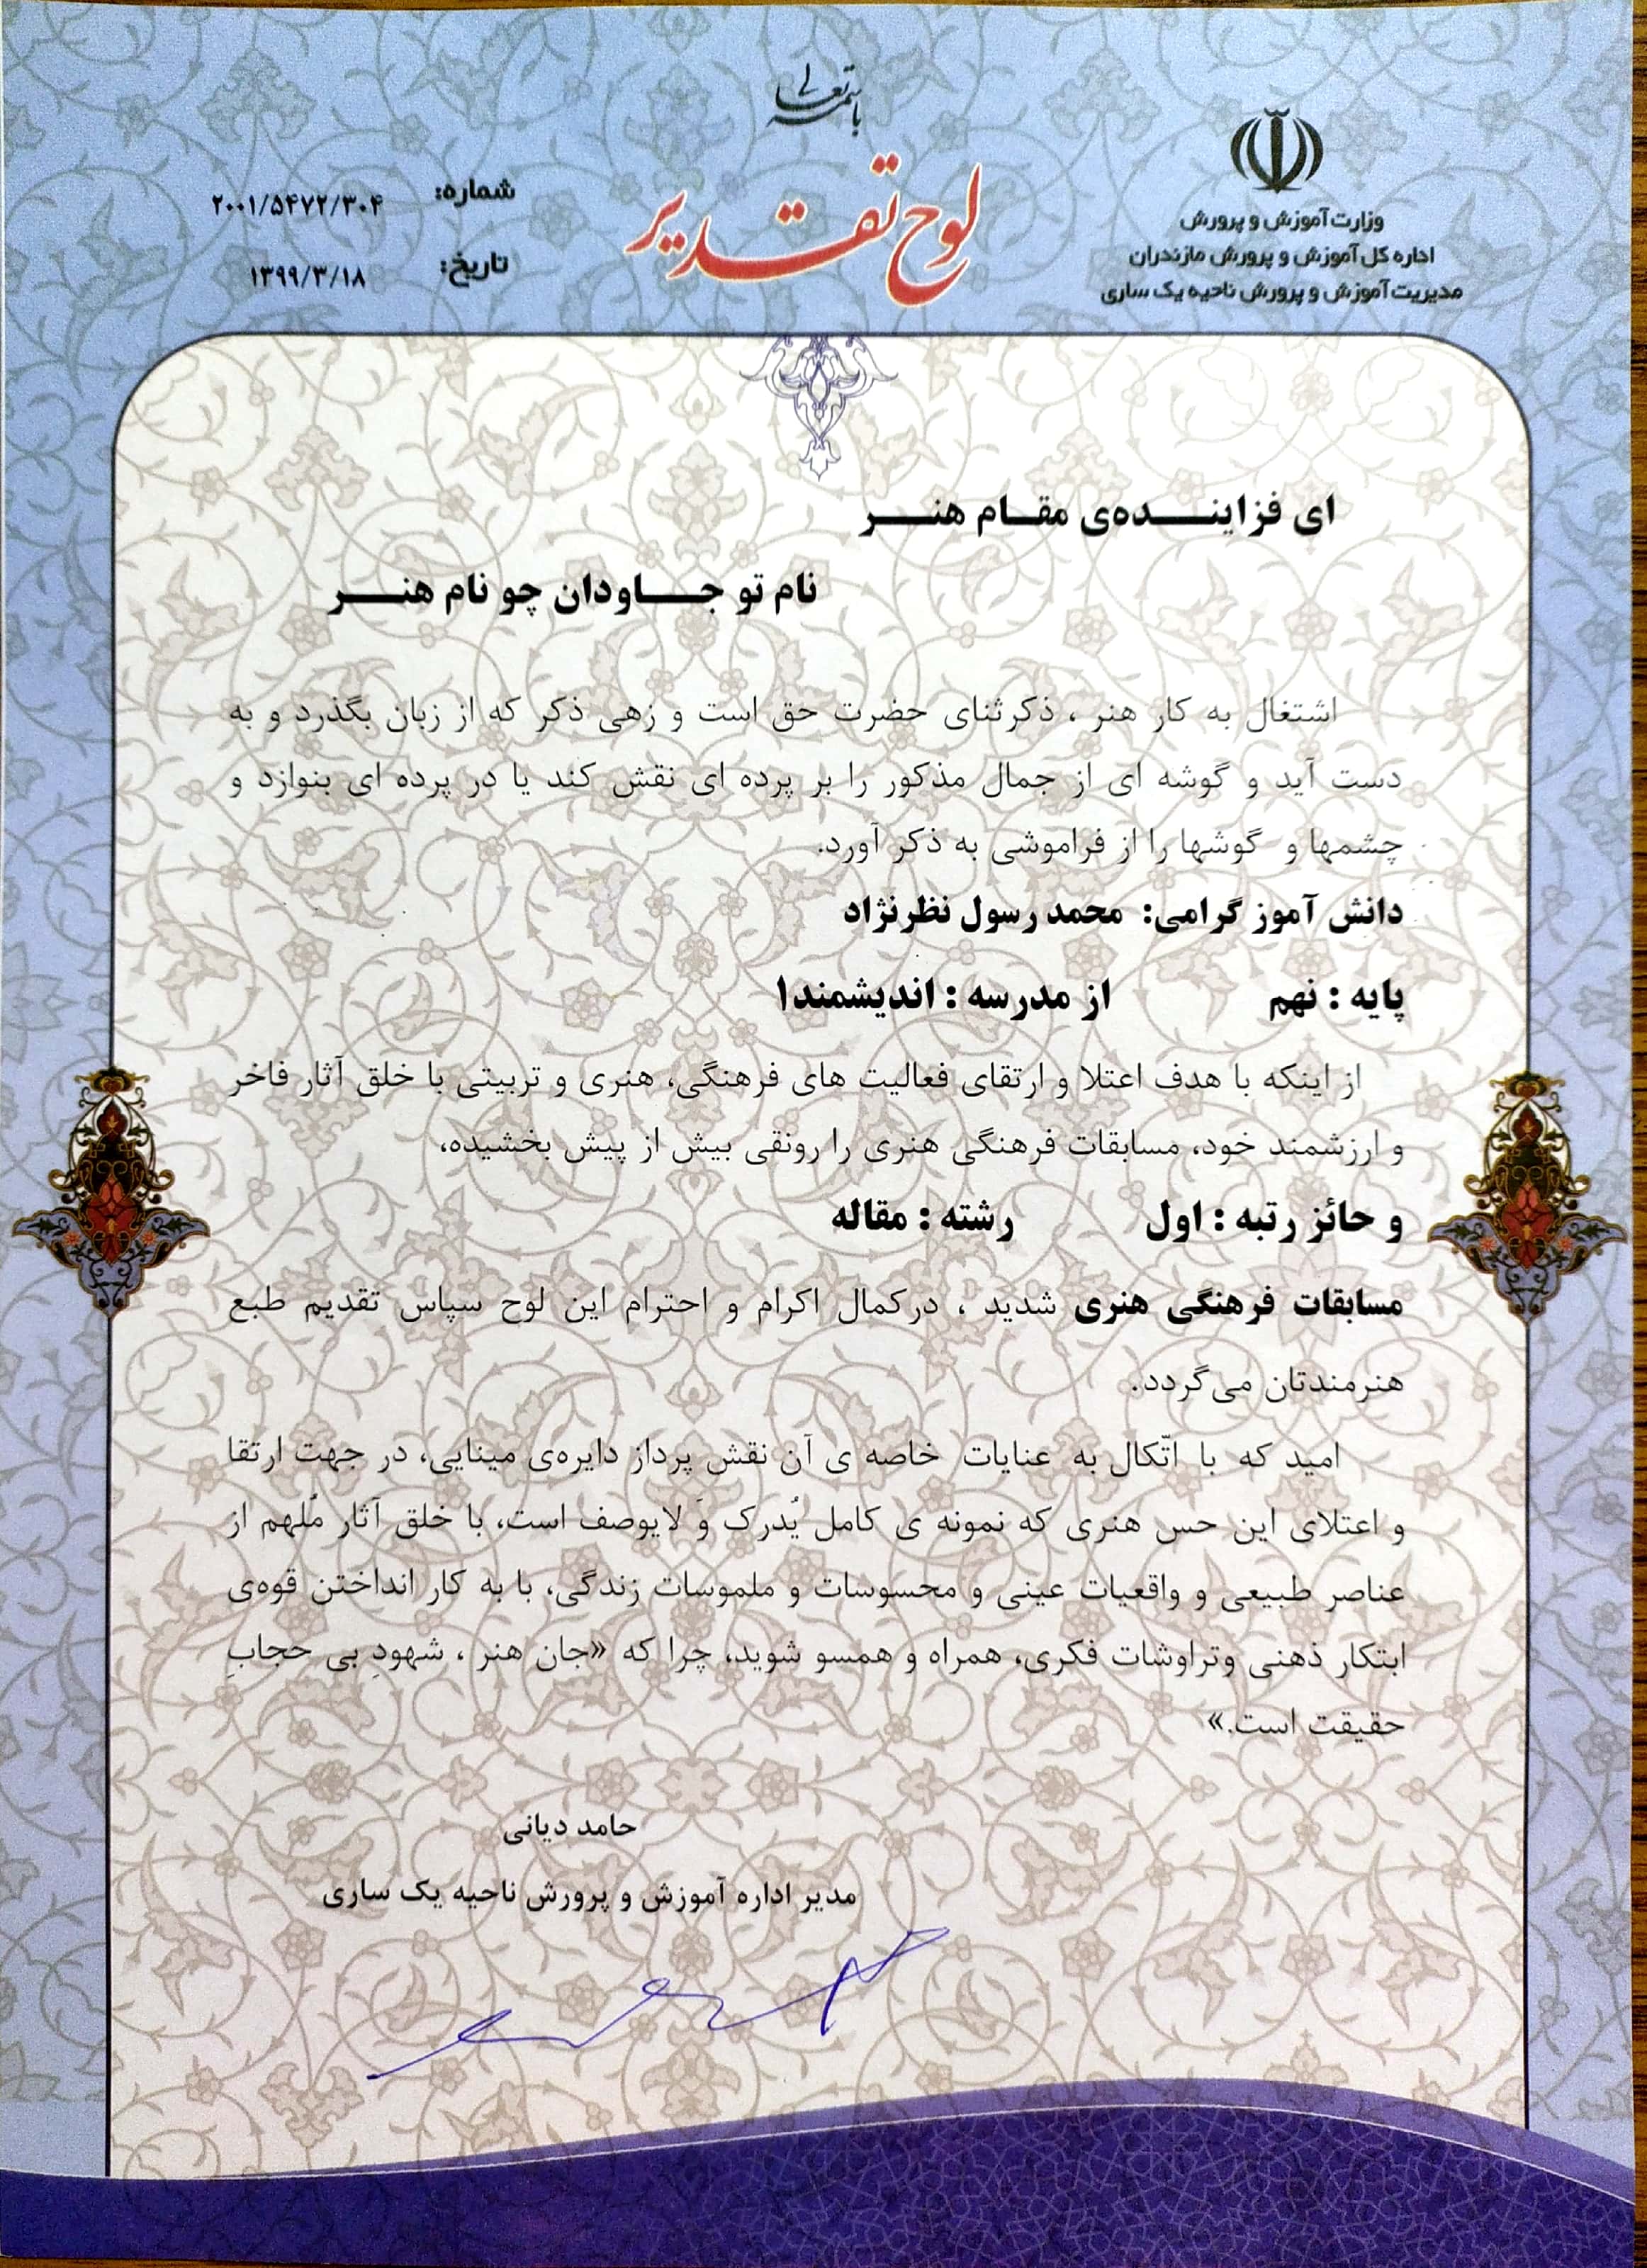 باسمه تعالی
لوح تقدیر
وزارت آموزش و پرورش
اداره کل آموزش و پرورش مازندران
مدیریت آموزش و پرورش ناحیه یک ساری
شماره: ۲۰۰۱/۵۴۷۲/۳۰۴
تاریخ: ۱۳۹۹/۳/۱۸
ای فزاینـــــده‌ی مقــام هنـــــر
نام تو جـــــاودان چو نام هنـــــر
اشتغال به کار هنر ، ذکرثنای حضرت حق است و زهی ذکر که از زبان بگذرد و به
دست آید و گوشه ای از جمال مذکور را بر پرده ای نقش کند یا در پرده ای بنوازد و
چشمها و گوشها را از فراموشی به ذکر آورد.
دانش آموز گرامی: محمد رسول نظرنژاد
پایه : نهم از مدرسه : اندیشمند۱
از اینکه با هدف اعتلا و ارتقای فعالیت های فرهنگی، هنری و تربیتی با خلق آثار فاخر
و ارزشمند خود، مسابقات فرهنگی هنری را رونقی بیش از پیش بخشیده،
و حائز رتبه : اول رشته : مقاله
مسابقات فرهنگی هنری شدید ، درکمال اکرام و احترام این لوح سپاس تقدیم طبع
هنرمندتان می‌گردد.
امید که با اتّکال به عنایات خاصه ی آن نقش پرداز دایره‌ی مینایی، در جهت ارتقا
و اعتلای این حس هنری که نمونه ی کامل یُدرک وَ لایوصف است، با خلق آثار مُلهم از
عناصر طبیعی و واقعیات عینی و محسوسات و ملموسات زندگی، با به کار انداختن قوه‌ی
ابتکار ذهنی وتراوشات فکری، همراه و همسو شوید، چرا که «جان هنر ، شهودِ بی حجابِ
حقیقت است.»
حامد دیانی
مدیر اداره آموزش و پرورش ناحیه یک ساری